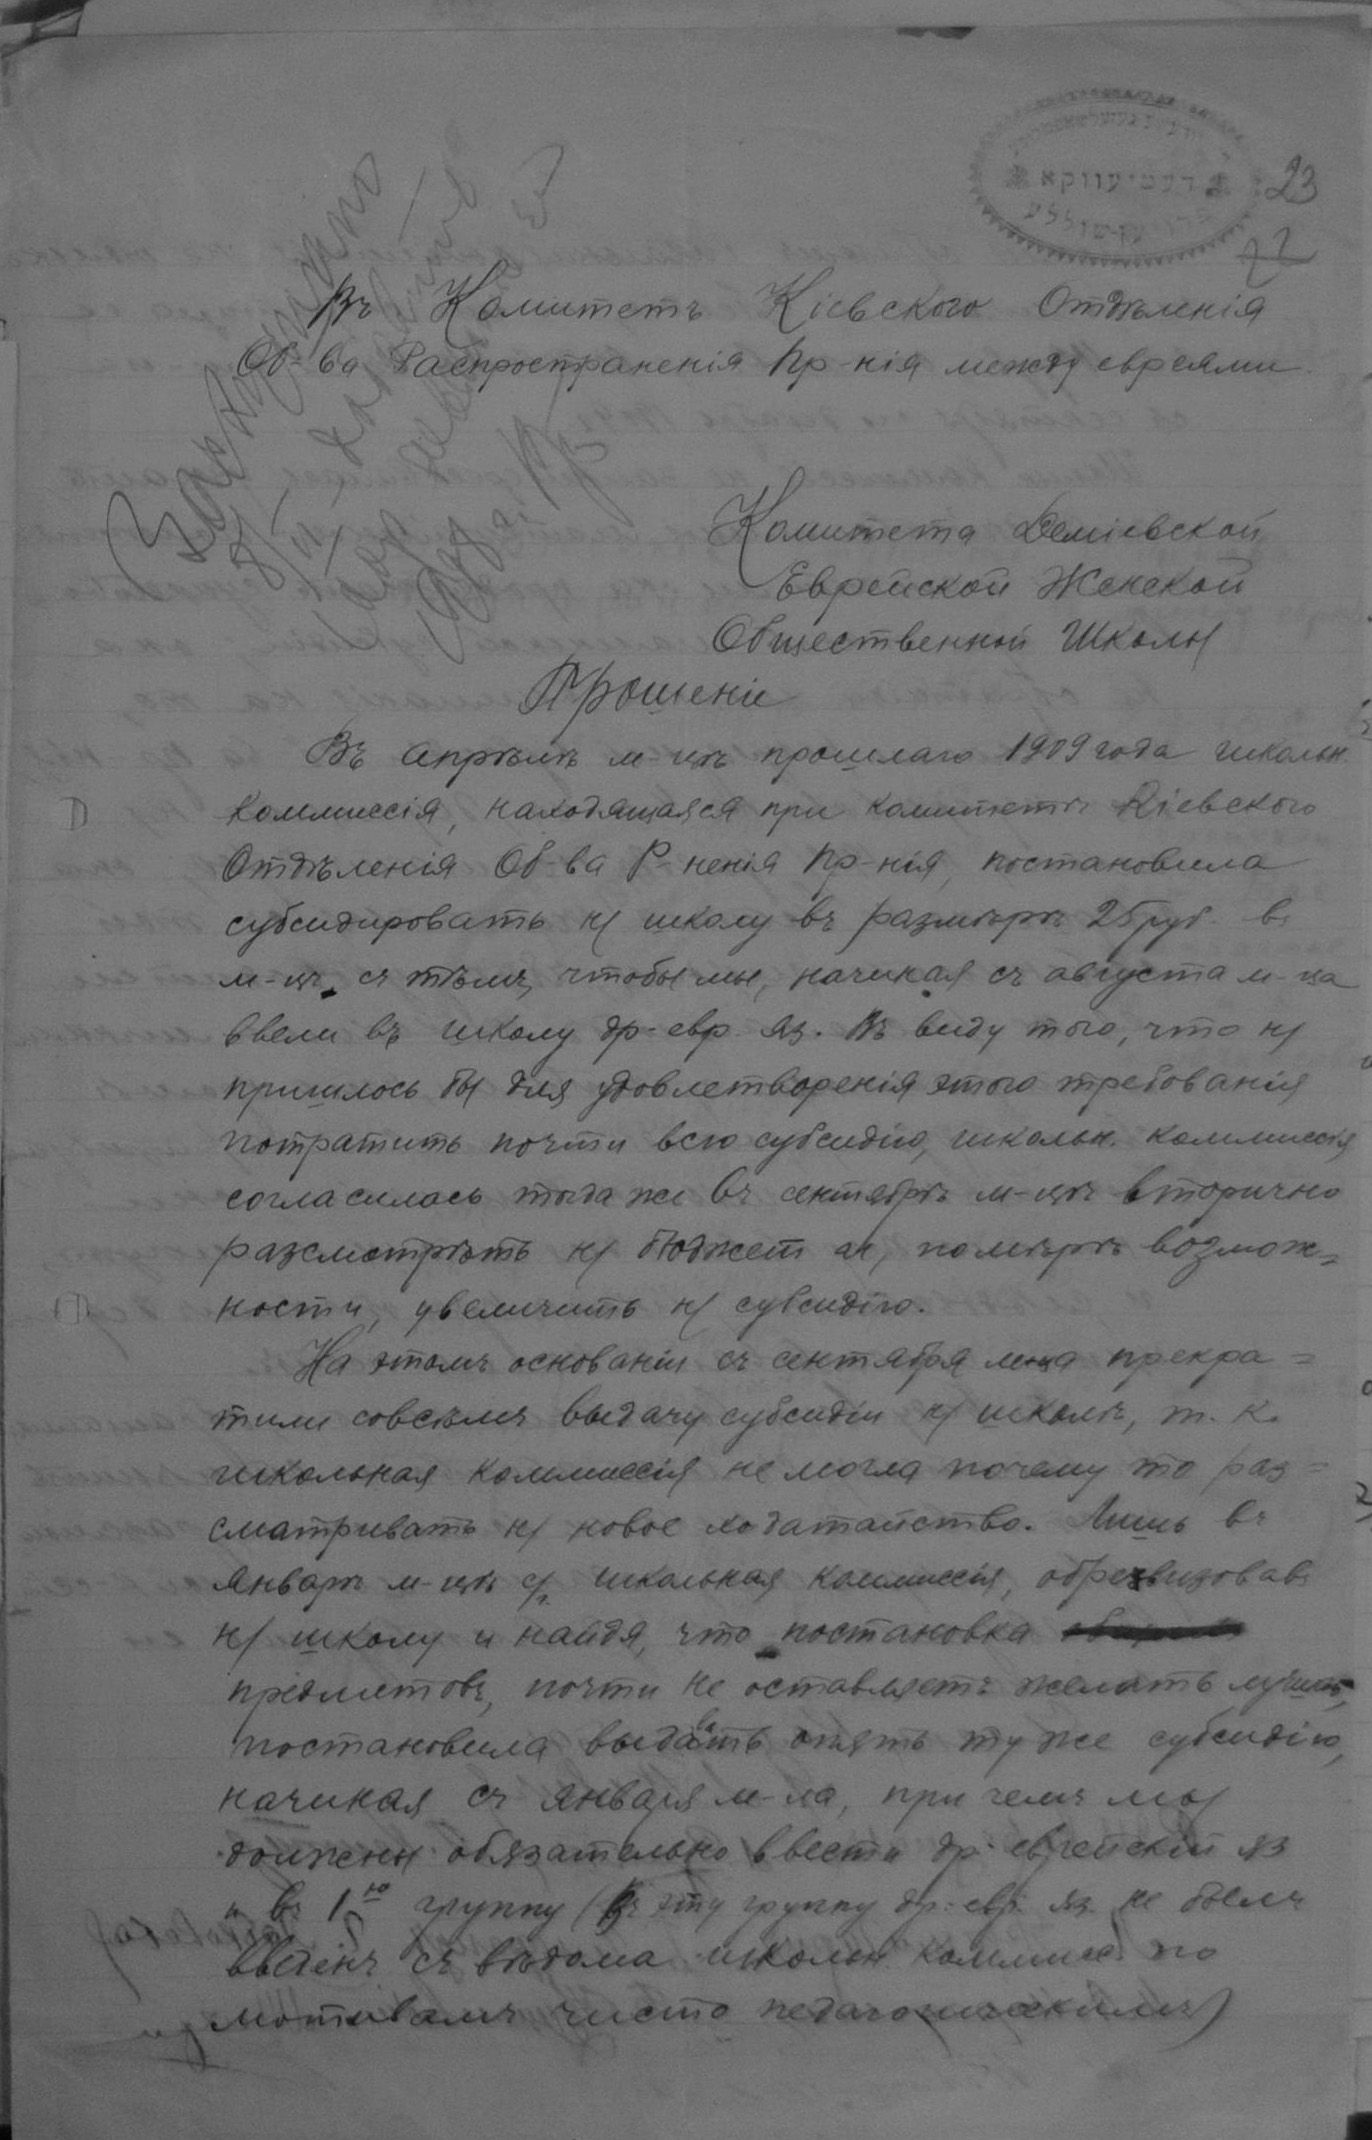 23
Въ Комитетъ Кіевского Отдѣленія
Об-ва Распространенія Пр-нія между евреями.
Комитета Деміевской
Еврейской Женской
Общественной Школы
Прошеніе
Въ апрѣлѣ м-цѣ прошлаго 1909 года школьн.
коммиссія, находящаяся при комитетѣ Кіевского
Отдѣленія Об-ва Р-ненія Пр-нія, постановила
субсидировать н/ школу въ размѣрѣ 25 руб. въ
м-цъ съ тѣмъ, чтобы мы, начиная съ августа м-ца
ввели въ школу др-евр. яз. Въ виду того, что н/
пришлось бы для удовлетворенія этого требованія
потратить почти всю субсидію, школьн. коммиссія
согласилась тогда же въ сентябрѣ м-цѣ вторично
разсмотрѣть н/ бюджет и, по мѣрѣ возмож=
ности, увеличить н/ субсидію.
На этомъ основаніи съ сентября м-ца прекра=
тили совсѣмъ выдачу субсидіи н/ школѣ, т. к.
школьная коммиссія не могла почему то раз=
сматривать н/ новое ходатайство. Лишь въ
январѣ м-цѣ с/г. школьная коммиссія, обревизовавъ
н/ школу и найдя, что постановка
предметовъ, почти не оставляетъ желать лучше,
постановила выдавать опять ту же субсидію,
начиная съ января м-ца, при чемъ мы
должны обязательно ввести др-еврейскій яз
и въ 1ю группу (въ эту группу др-евр. яз. не былъ
введенъ съ вѣдома школьн. коммисс. по
мотивамъ чисто педагогическимъ)